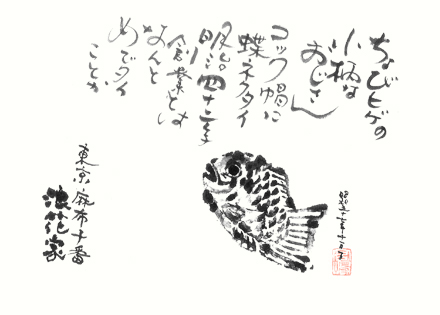 ちょびヒゲの
小柄な
おじさん
コック帽に
蝶ネクタイ
明治四十二年
創業とは
なんと
めでタイ
ことか
東京麻布十番
浪花家